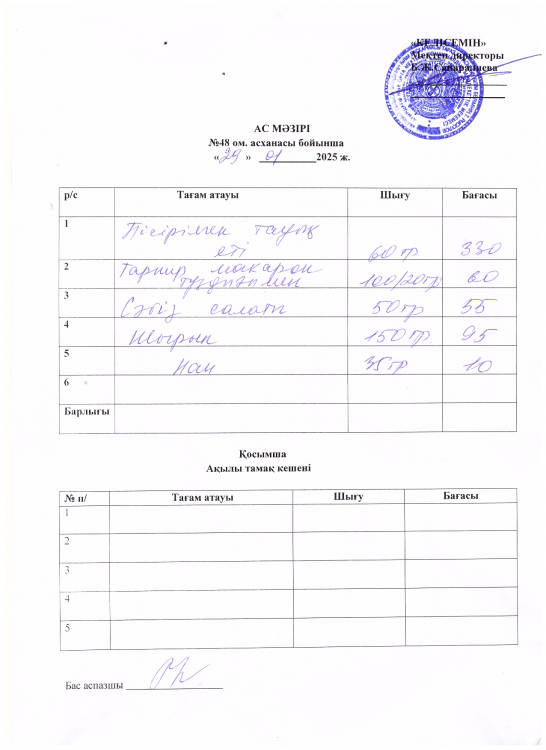 «КЕЛІСЕМІН»
Мектеп директоры
Б.Ж.Сапаралиева
АС МӘЗІРІ
№48 ом. асханасы бойынша
« 29 » 01 2025 ж.
р/с Тағам атауы Шығу Бағасы
1 Пісірілген тауық
еті 60 гр 330
2 Гарнир макарон
100/20гр 60
3 Сәбіз салаты 50 гр 55
4 150 гр 95
5 Нан 35 гр 10
6
Барлығы
Қосымша
Ақылы тамақ кешені
№ п/ Тағам атауы Шығу Бағасы
1
2
3
4
5
Бас аспазшы